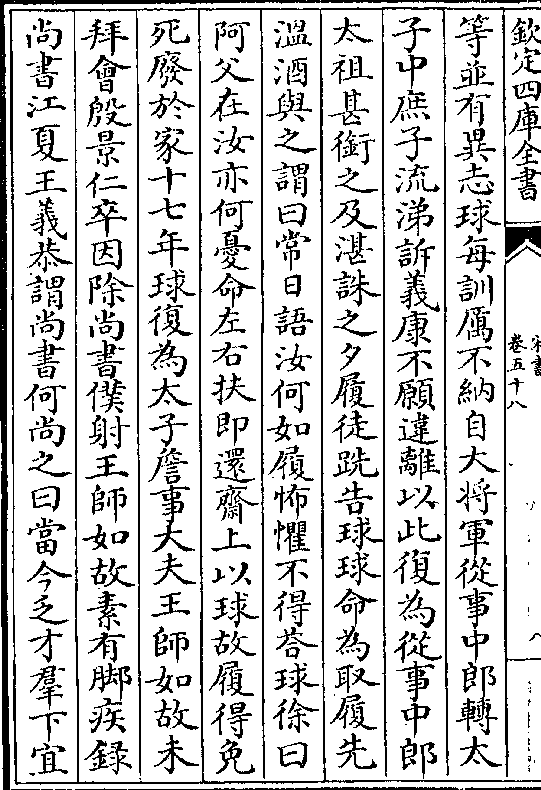 欽定四庫全書
宋書
卷五十八
八
等並有異志球每訓厲不納自大将軍從事中郎轉太
子中庶子流涕訴義康不願違離以此復為從事中郎
太祖甚銜之及湛誅之夕履徒跣告球球命為取履先
溫酒與之謂曰常日語汝何如履怖懼不得荅球徐曰
阿父在汝亦何憂命左右扶即還齋上以球故履得免
死廢於家十七年球復為太子詹事大夫王師如故未
拜會殷景仁卒因除尚書僕射王師如故素有脚疾錄
尚書江夏王義恭謂尚書何尚之曰當今乏才羣下宜